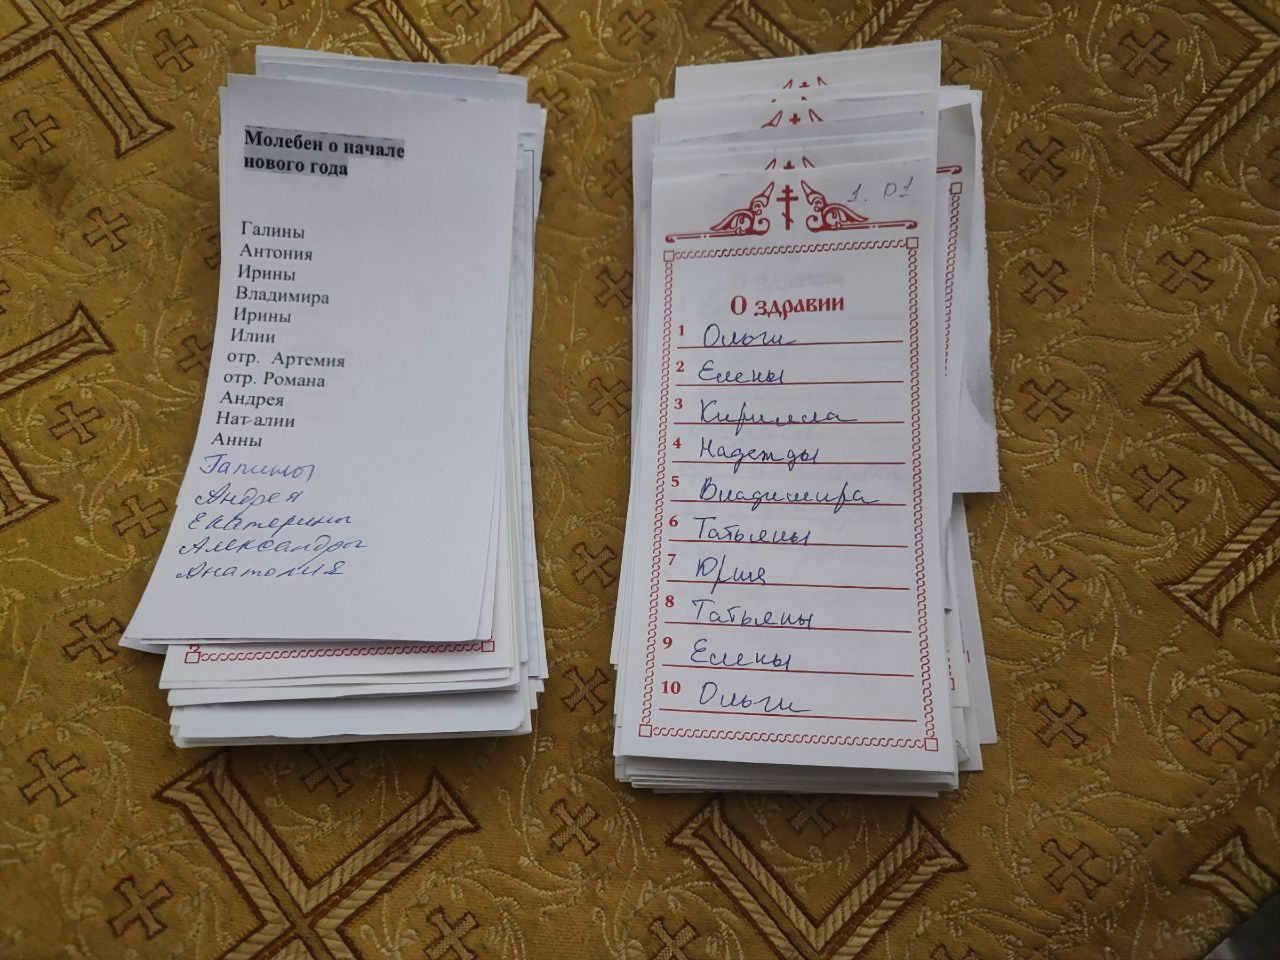 Молебен о начале
нового года
Галины
Антония
Ирины
Владимира
Ирины
Илии
отр. Артемия
отр. Романа
Андрея
Нат-алии
Анны
Галины
Андрея
Екатерины
Александры
Анатолия
1. 01
О здравии
1 Ольги
2 Елены
3 Кирилла
4 Надежды
5 Владимира
6 Татьяны
7 Юрия
8 Татьяны
9 Елены
10 Ольги